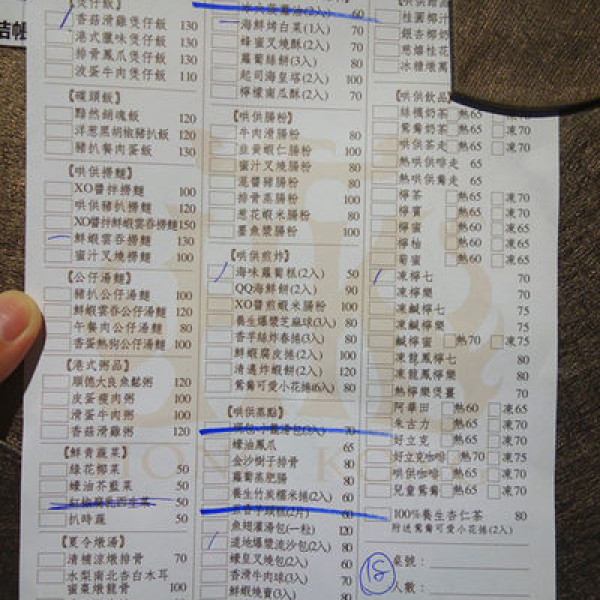 結帳
煲仔飯】
香菇滑雞煲仔飯 130
港式臘味煲仔飯 130
排骨鳳爪煲仔飯 130
波蛋牛肉煲仔飯 110
【碟頭飯】
黯然銷魂飯 120
洋蔥黑胡椒豬扒飯 120
豬扒餐肉蛋飯 130
【哄供撈麵】
XO醬拌撈麵 100
哄供豬扒撈麵 120
XO醬拌鮮蝦雲吞撈麵150
鮮蝦雲吞撈麵 130
蜜汁叉燒撈麵 100
【公仔湯麵】
豬扒公仔湯麵 100
鮮蝦雲吞公仔湯麵 120
午餐肉公仔湯麵 80
香蛋熱狗公仔湯麵 100
【港式粥品】
順德大良魚鬆粥 120
皮蛋瘦肉粥 100
滑蛋牛肉粥 100
香菇滑雞粥 120
【鮮青蔬菜】
綠花椰菜 50
蠔油芥藍菜 50
50
扒時蔬 50
【夏令燉湯】
清補涼燉排骨 70
水梨南北杏白木耳
蜜棗燉龍骨 100
(2入) 60
海鮮烤白菜(1入) 70
蜂蜜叉燒酥(2入) 70
蘿蔔絲餅(3入) 80
起司海皇塔(2入) 100
檸檬南瓜酥(2入) 70
【哄供腸粉】
牛肉滑腸粉 80
韭黃蝦仁腸粉 100
蜜汁叉燒腸粉 80
混醬豬腸粉 80
排骨蒸腸粉 100
蔥花蝦米腸粉 80
墨魚漿腸粉 100
【哄供煎炸】
海味蘿蔔糕(2入) 50
QQ海鮮餅(2入) 90
XO醬煎蝦米腸粉 100
養生爆漿芝麻球(3入) 80
香芋絲炸春捲(3入) 80
鮮蝦腐皮捲(2入) 100
清邁炸蝦餅(2入) 120
鴛鴦可愛小花捲(6入) 80
【哄供蒸點】
小籠湯包(3入) 70
蠔油鳳爪 65
金沙樹子排骨 80
蘿蔔蒸肥腸 80
養生竹炭糯米捲(2入) 80
(2片) 60
魚翅灌湯包(一粒) 120
道地爆漿流沙包(2入) 80
蠔皇叉燒包(2入) 60
香滑牛肉球(3入) 70
鮮蝦燒賣(3入) 80
桂圓椰汁
銀杏椰汁
冰糖燉萬
【哄供飲品】
絲襪奶茶 熱65 凍70
鴛鴦奶茶 熱65 凍70
哄供茶走 熱65 凍70
熱哄供啡走 65
熱哄供鴦走 65
檸茶 熱65 凍70
檸賓 熱65 凍70
檸蜜 熱60 凍65
檸柚 熱60 凍65
菊蜜 熱60 凍65
凍檸七 70
凍檸樂 70
凍鹹檸七 75
凍鹹檸樂 75
鹹檸蜜 熱70 凍75
凍龍鳳檸七 80
凍龍鳳檸樂 80
熱檸樂煲薑 70
阿華田 熱60 凍65
朱古力 熱65 凍70
好立克 熱65 凍70
好立克咖啡 熱70 凍75
哄供咖啡 熱65 凍70
兒童鴛鴦 熱65 凍70
100%養生杏仁茶 80
附送鴛鴦可愛小花捲(2入)
桌號：
人數：
18